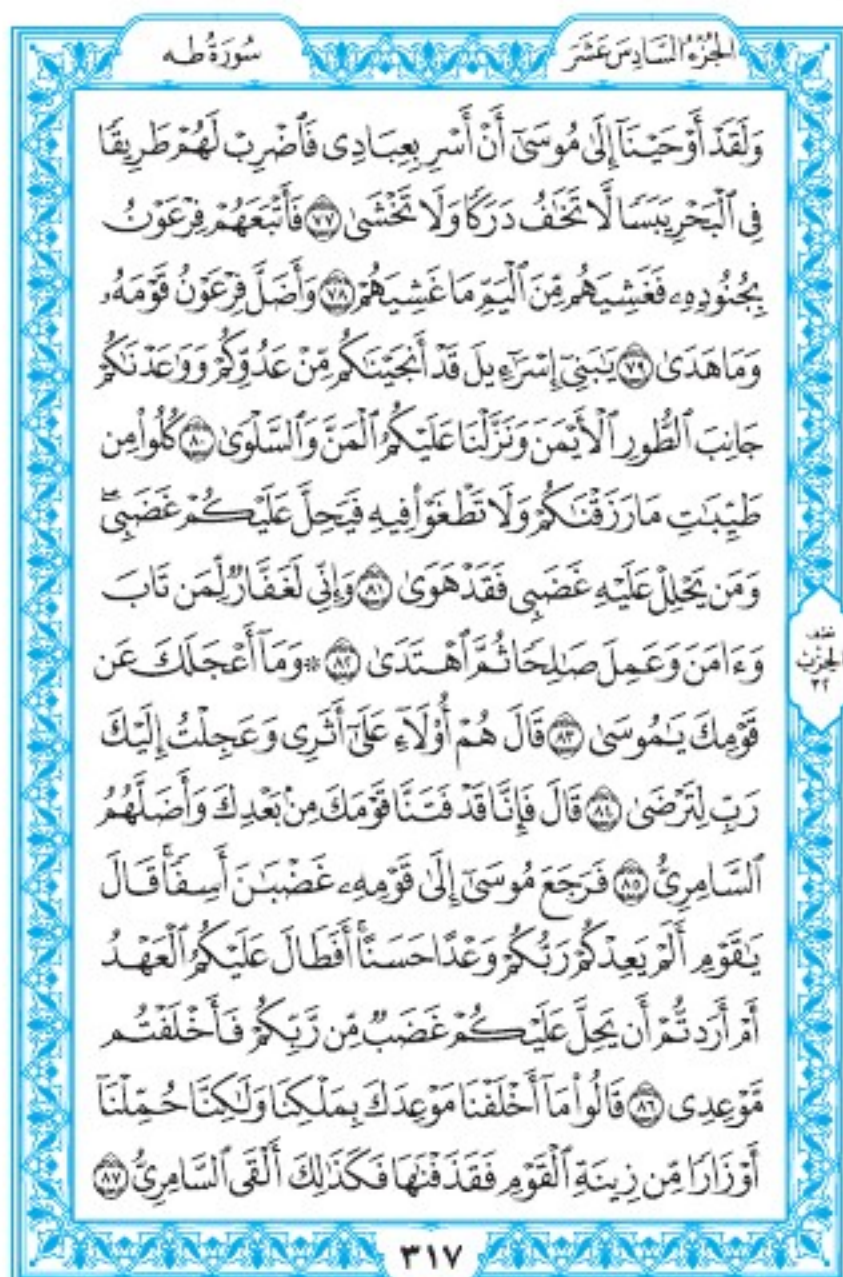 الجُزْءُ السَّادِسَ عَشَرَ
سُورَةُ طه
وَلَقَدْ أَوْحَيْنَآ إِلَىٰ مُوسَىٰٓ أَنْ أَسْرِ بِعِبَادِى فَٱضْرِبْ لَهُمْ طَرِيقًا
فِى ٱلْبَحْرِ يَبَسًا لَّا تَخَٰفُ دَرَكًا وَلَا تَخْشَىٰ ٧٧ فَأَتْبَعَهُمْ فِرْعَوْنُ
بِجُنُودِهِۦ فَغَشِيَهُم مِّنَ ٱلْيَمِّ مَا غَشِيَهُمْ ٧٨ وَأَضَلَّ فِرْعَوْنُ قَوْمَهُۥ
وَمَا هَدَىٰ ٧٩ يَٰبَنِىٓ إِسْرَٰٓءِيلَ قَدْ أَنجَيْنَٰكُم مِّنْ عَدُوِّكُمْ وَوَٰعَدْنَٰكُمْ
جَانِبَ ٱلطُّورِ ٱلْأَيْمَنَ وَنَزَّلْنَا عَلَيْكُمُ ٱلْمَنَّ وَٱلسَّلْوَىٰ ٨٠ كُلُوا۟ مِن
طَيِّبَٰتِ مَا رَزَقْنَٰكُمْ وَلَا تَطْغَوْا۟ فِيهِ فَيَحِلَّ عَلَيْكُمْ غَضَبِىۖ
وَمَن يَحْلِلْ عَلَيْهِ غَضَبِى فَقَدْ هَوَىٰ ٨١ وَإِنِّى لَغَفَّارٌ لِّمَن تَابَ
وَءَامَنَ وَعَمِلَ صَٰلِحًا ثُمَّ ٱهْتَدَىٰ ٨٢ ۞ وَمَآ أَعْجَلَكَ عَن
قَوْمِكَ يَٰمُوسَىٰ ٨٣ قَالَ هُمْ أُو۟لَآءِ عَلَىٰٓ أَثَرِى وَعَجِلْتُ إِلَيْكَ
رَبِّ لِتَرْضَىٰ ٨٤ قَالَ فَإِنَّا قَدْ فَتَنَّا قَوْمَكَ مِنۢ بَعْدِكَ وَأَضَلَّهُمُ
ٱلسَّامِرِىُّ ٨٥ فَرَجَعَ مُوسَىٰٓ إِلَىٰ قَوْمِهِۦ غَضْبَٰنَ أَسِفًاۚ قَالَ
يَٰقَوْمِ أَلَمْ يَعِدْكُمْ رَبُّكُمْ وَعْدًا حَسَنًاۚ أَفَطَالَ عَلَيْكُمُ ٱلْعَهْدُ
أَمْ أَرَدتُّمْ أَن يَحِلَّ عَلَيْكُمْ غَضَبٌ مِّن رَّبِّكُمْ فَأَخْلَفْتُم
مَّوْعِدِى ٨٦ قَالُوا۟ مَآ أَخْلَفْنَا مَوْعِدَكَ بِمَلْكِنَا وَلَٰكِنَّا حُمِّلْنَآ
أَوْزَارًا مِّن زِينَةِ ٱلْقَوْمِ فَقَذَفْنَٰهَا فَكَذَٰلِكَ أَلْقَى ٱلسَّامِرِىُّ ٨٧
نصف
الحِزْب
٣٢
٣١٧